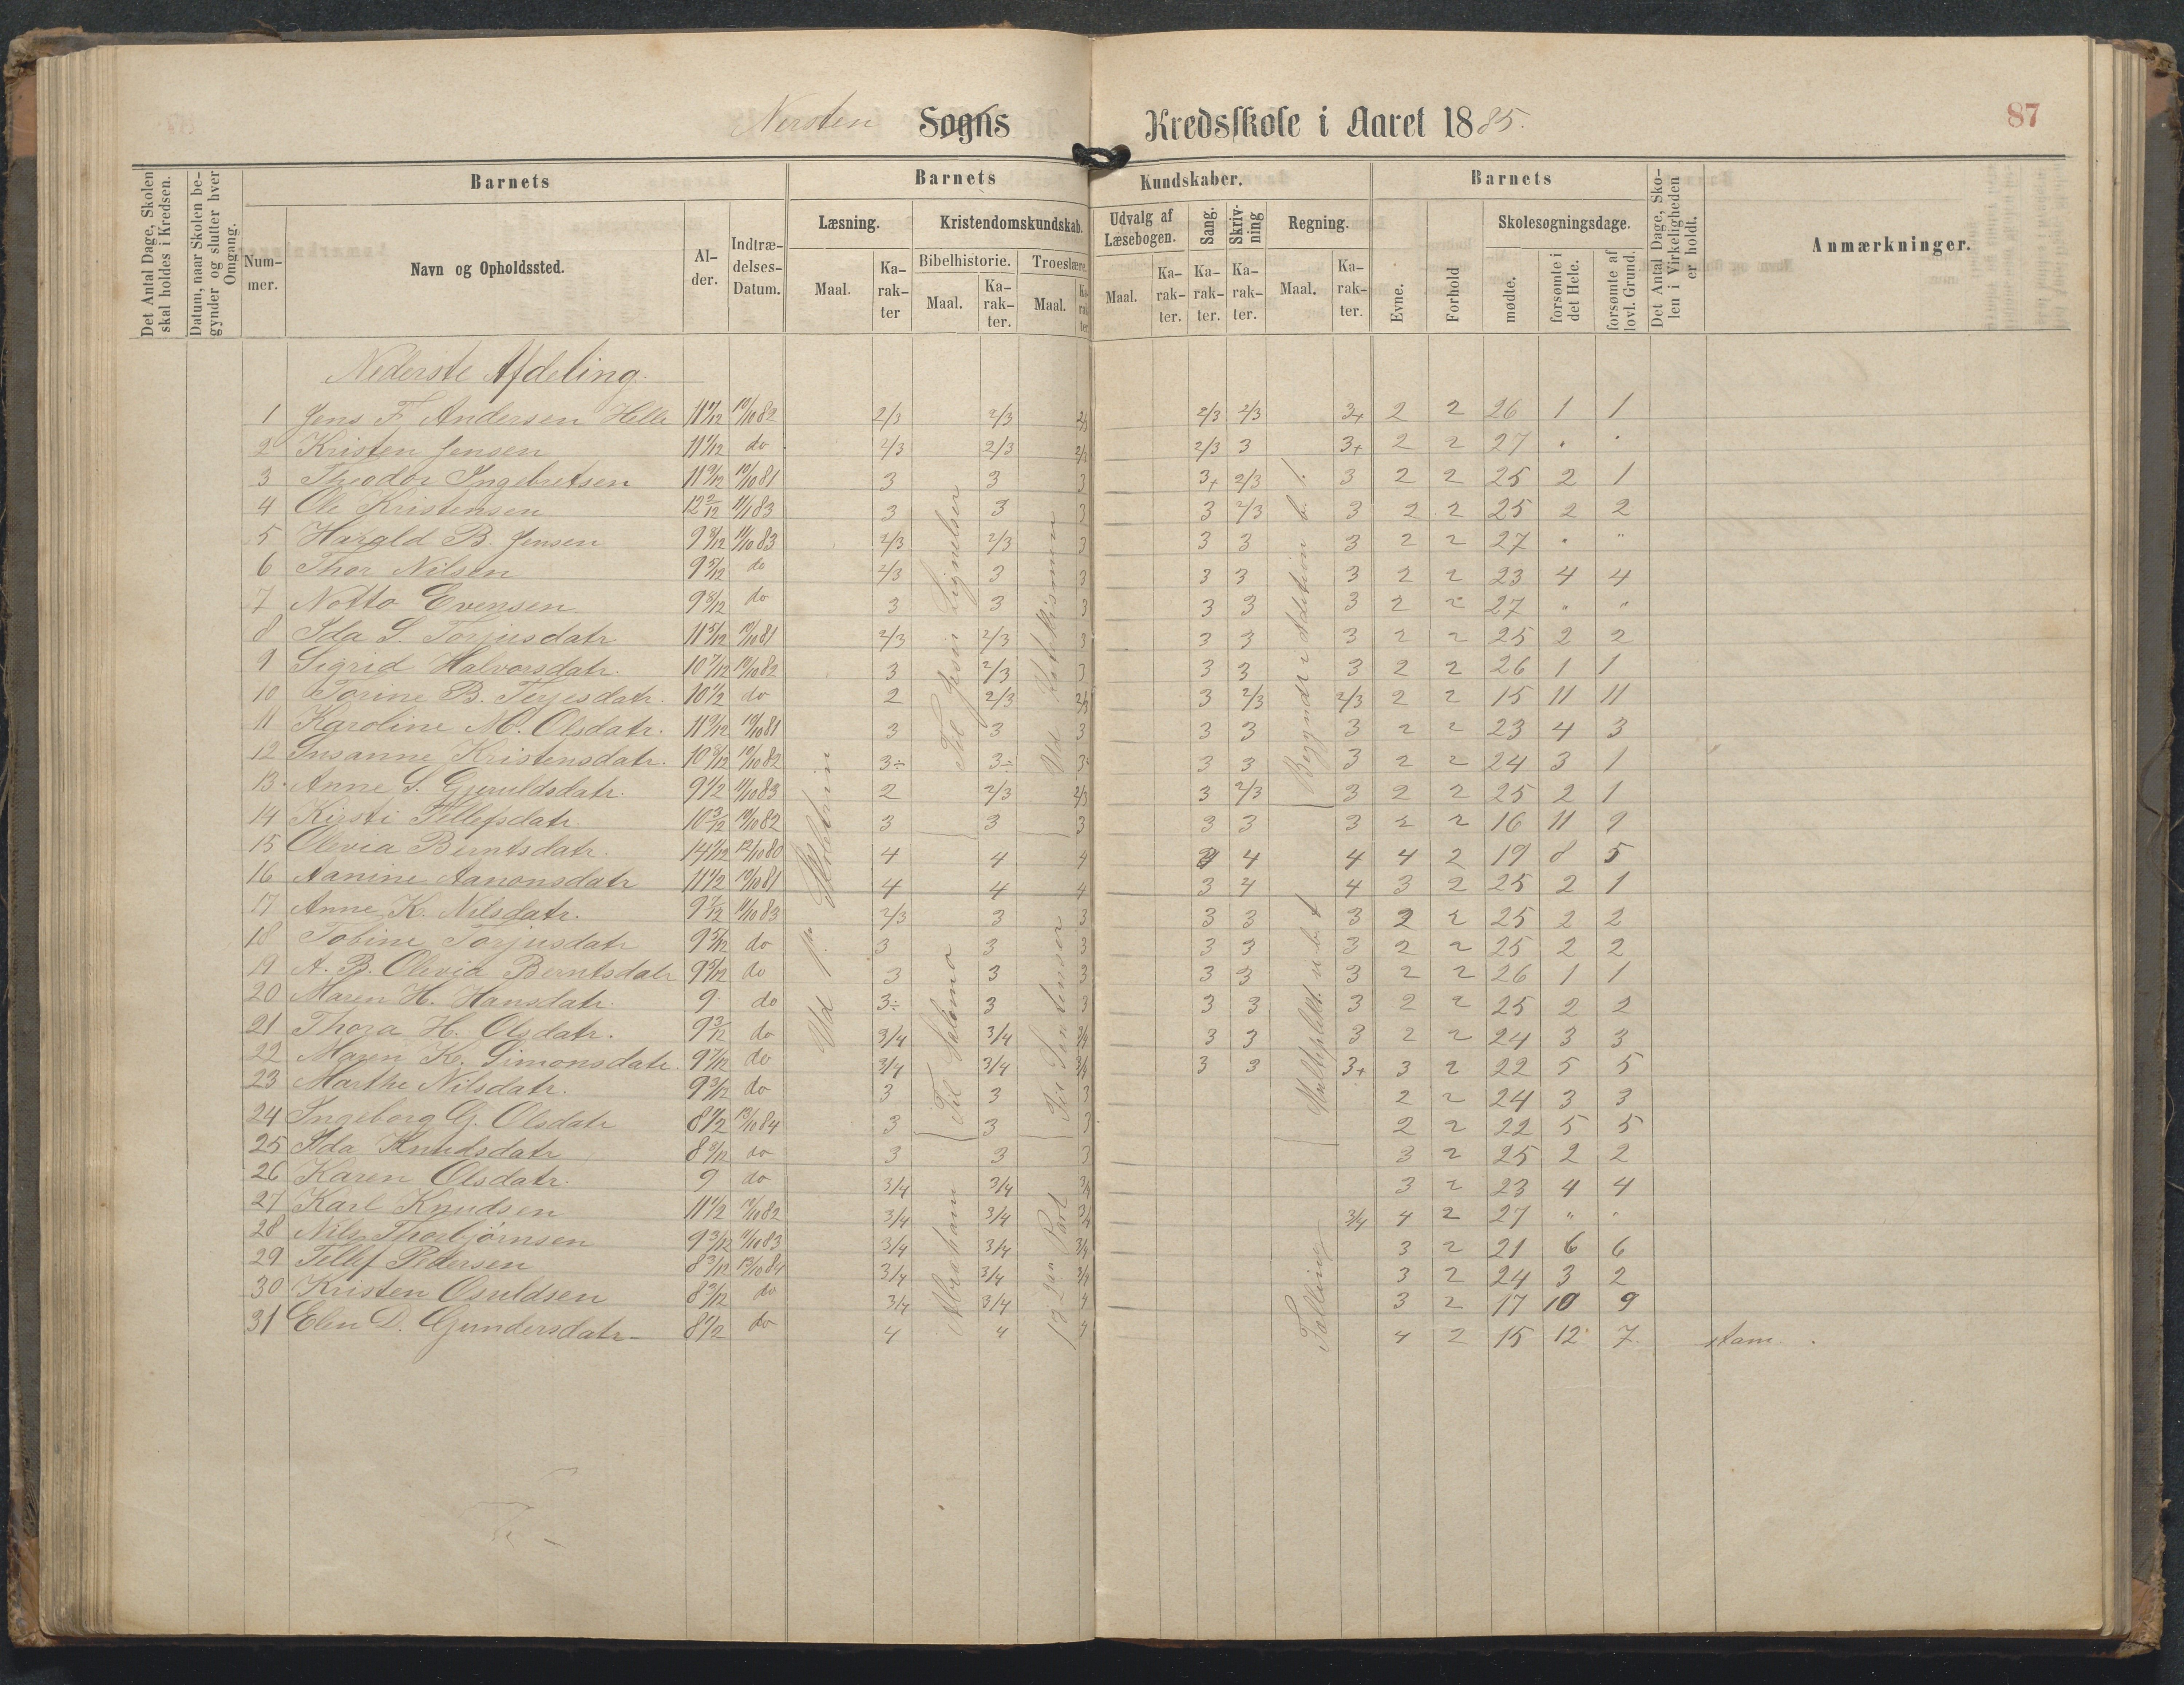 Nersten Sogns Kredsskole i Aaret 1885.
87
Det Antal Dage, Skolen skal holdes i Kredsen.
Datum, naar Skolen begynder og slutter hver Omgang.
Barnets
Barnets Kundskaber.
Barnets
Det Antal Dage, Skolen i Virkeligheden er holdt.
Anmærkninger.
Nummer.
Navn og Opholdssted.
Alder.
Indtrædelses-Datum.
Læsning.
Kristendomskundskab.
Udvalg af Læsebogen.
Sang.
Skrivning
Regning.
Evne.
Forhold
Skolesøgningsdage.
Bibelhistorie.
Troeslære.
Maal.
Karakter
Maal.
Karakter.
Maal.
Karakter
Maal.
Karakter.
Karakter.
Karakter.
Maal.
Karakter.
mødte.
forsømte i det Hele.
forsømte af lovl. Grund.
Nederste Afdeling.
1 Jens F. Andersen Helle 11 11/12 10/10 82 2/3 2/3 2/3 2/3 2/3 3+ 2 2 26 1 1
2 Kristen Jensen 11 1/12 do 2/3 2/3 2/3 2/3 3 3+ 2 2 27 " "
3 Theodor Ingebretsen 11 9/12 10/10 81 3 3 3 3+ 2/3 3 2 2 25 2 1
4 Ole Kristensen 12 2/12 11/1 83 3 3 3 3 2/3 3 2 2 25 2 2
5 Harald B. Jensen 9 8/12 11/10 83 2/3 2/3 3 3 3 3 2 2 27 " "
6 Thor Nilsen 9 5/12 do 2/3 3 3 3 3 3 2 2 23 4 4
7 Notto Evensen 9 8/12 do 3 3 3 3 3 3 2 2 27 " "
8 Ida S. Torjusdatr 11 5/12 10/10 81 2/3 2/3 3 3 3 3 2 2 25 2 2
9 Sigrid Halvorsdatr. 10 7/12 10/10 82 3 2/3 3 3 3 3 2 2 26 1 1
10 Torine B. Terjesdatr. 10 1/2 do 2 2/3 2/3 3 2/3 2/3 2 2 15 11 11
11 Karoline M. Olsdatr. 11 9/12 10/10 81 3 3 3 3 3 3 2 2 23 4 3
12 Susanne Kristensdatr. 10 8/12 10/10 82 3÷ 3÷ 3 3 3 3 2 2 24 3 1
13 Anne S. Gjeruldsdatr. 9 1/2 11/10 83 2 2/3 2/3 3 2/3 3 2 2 25 2 1
14 Kirsti Tellefsdatr. 10 3/12 10/10 82 3 3 3 3 3 3 2 2 16 11 9
15 Olevia Berntsdatr. 14 1/12 12/10 80 4 4 4 4 4 4 2 19 8 5
16 Aanine Aanonsdatr 11 1/2 10/10 81 4 4 4 3 4 4 3 2 25 2 1
17 Anne K. Nilsdatr. 9 7/12 11/10 83 2/3 3 3 3 3 3 2 2 25 2 2
18 Tobine Torjusdatr 9 5/12 do 3 3 3 3 3 3 2 2 25 2 2
19 A. B. Olevia Berntsdatr 9 5/12 do 3 3 3 3 3 3 2 2 26 1 1
20 Maren H. Hansdatr. 9 do 3÷ 3 3 3 3 3 2 2 25 2 2
21 Thora H. Olsdatr. 9 3/12 do 3/4 3/4 3/4 3 3 3 2 2 24 3 3
22 Maren K. Simonsdatr. 9 7/12 do 3/4 3/4 3/4 3 3 3+ 3 2 22 5 5
23 Marthe Nilsdatr. 9 3/12 do 3 3 3 2 2 24 3 3
24 Ingeborg G. Olsdatr 8 1/2 13/10 84 3 3 3 2 2 22 5 5
25 Ada Knudsdatr 8 9/12 do 3 3 3 3 2 25 2 2
26 Karen Olsdatr. 9 do 3/4 3/4 3/4 3 2 23 4 4
27 Karl Knudsen 11 1/2 10/10 82 3/4 3/4 3/4 3/4 4 2 27 " "
28 Nils Thorbjørnsen 9 3/12 11/10 83 3/4 3/4 3/4 3 2 21 6 6
29 Tellef Pedersen 8 3/12 13/10 84 3/4 3/4 3/4 3 2 24 3 2
30 Kristen Osuldsen 8 9/12 do 3/4 3/4 4 3 2 17 10 9
31 Elen D. Gundersdatr 8 1/2 do 4 4 4 4 2 15 12 7 stam.
Ud 1ste Skoletrin
Til Jesu Lignelser
Til Salomo
Abraham
Ud Katekismen
1 og 2den Part
Begyndt i Addition b. 1.
Multiplikt. ub. t
Tælling